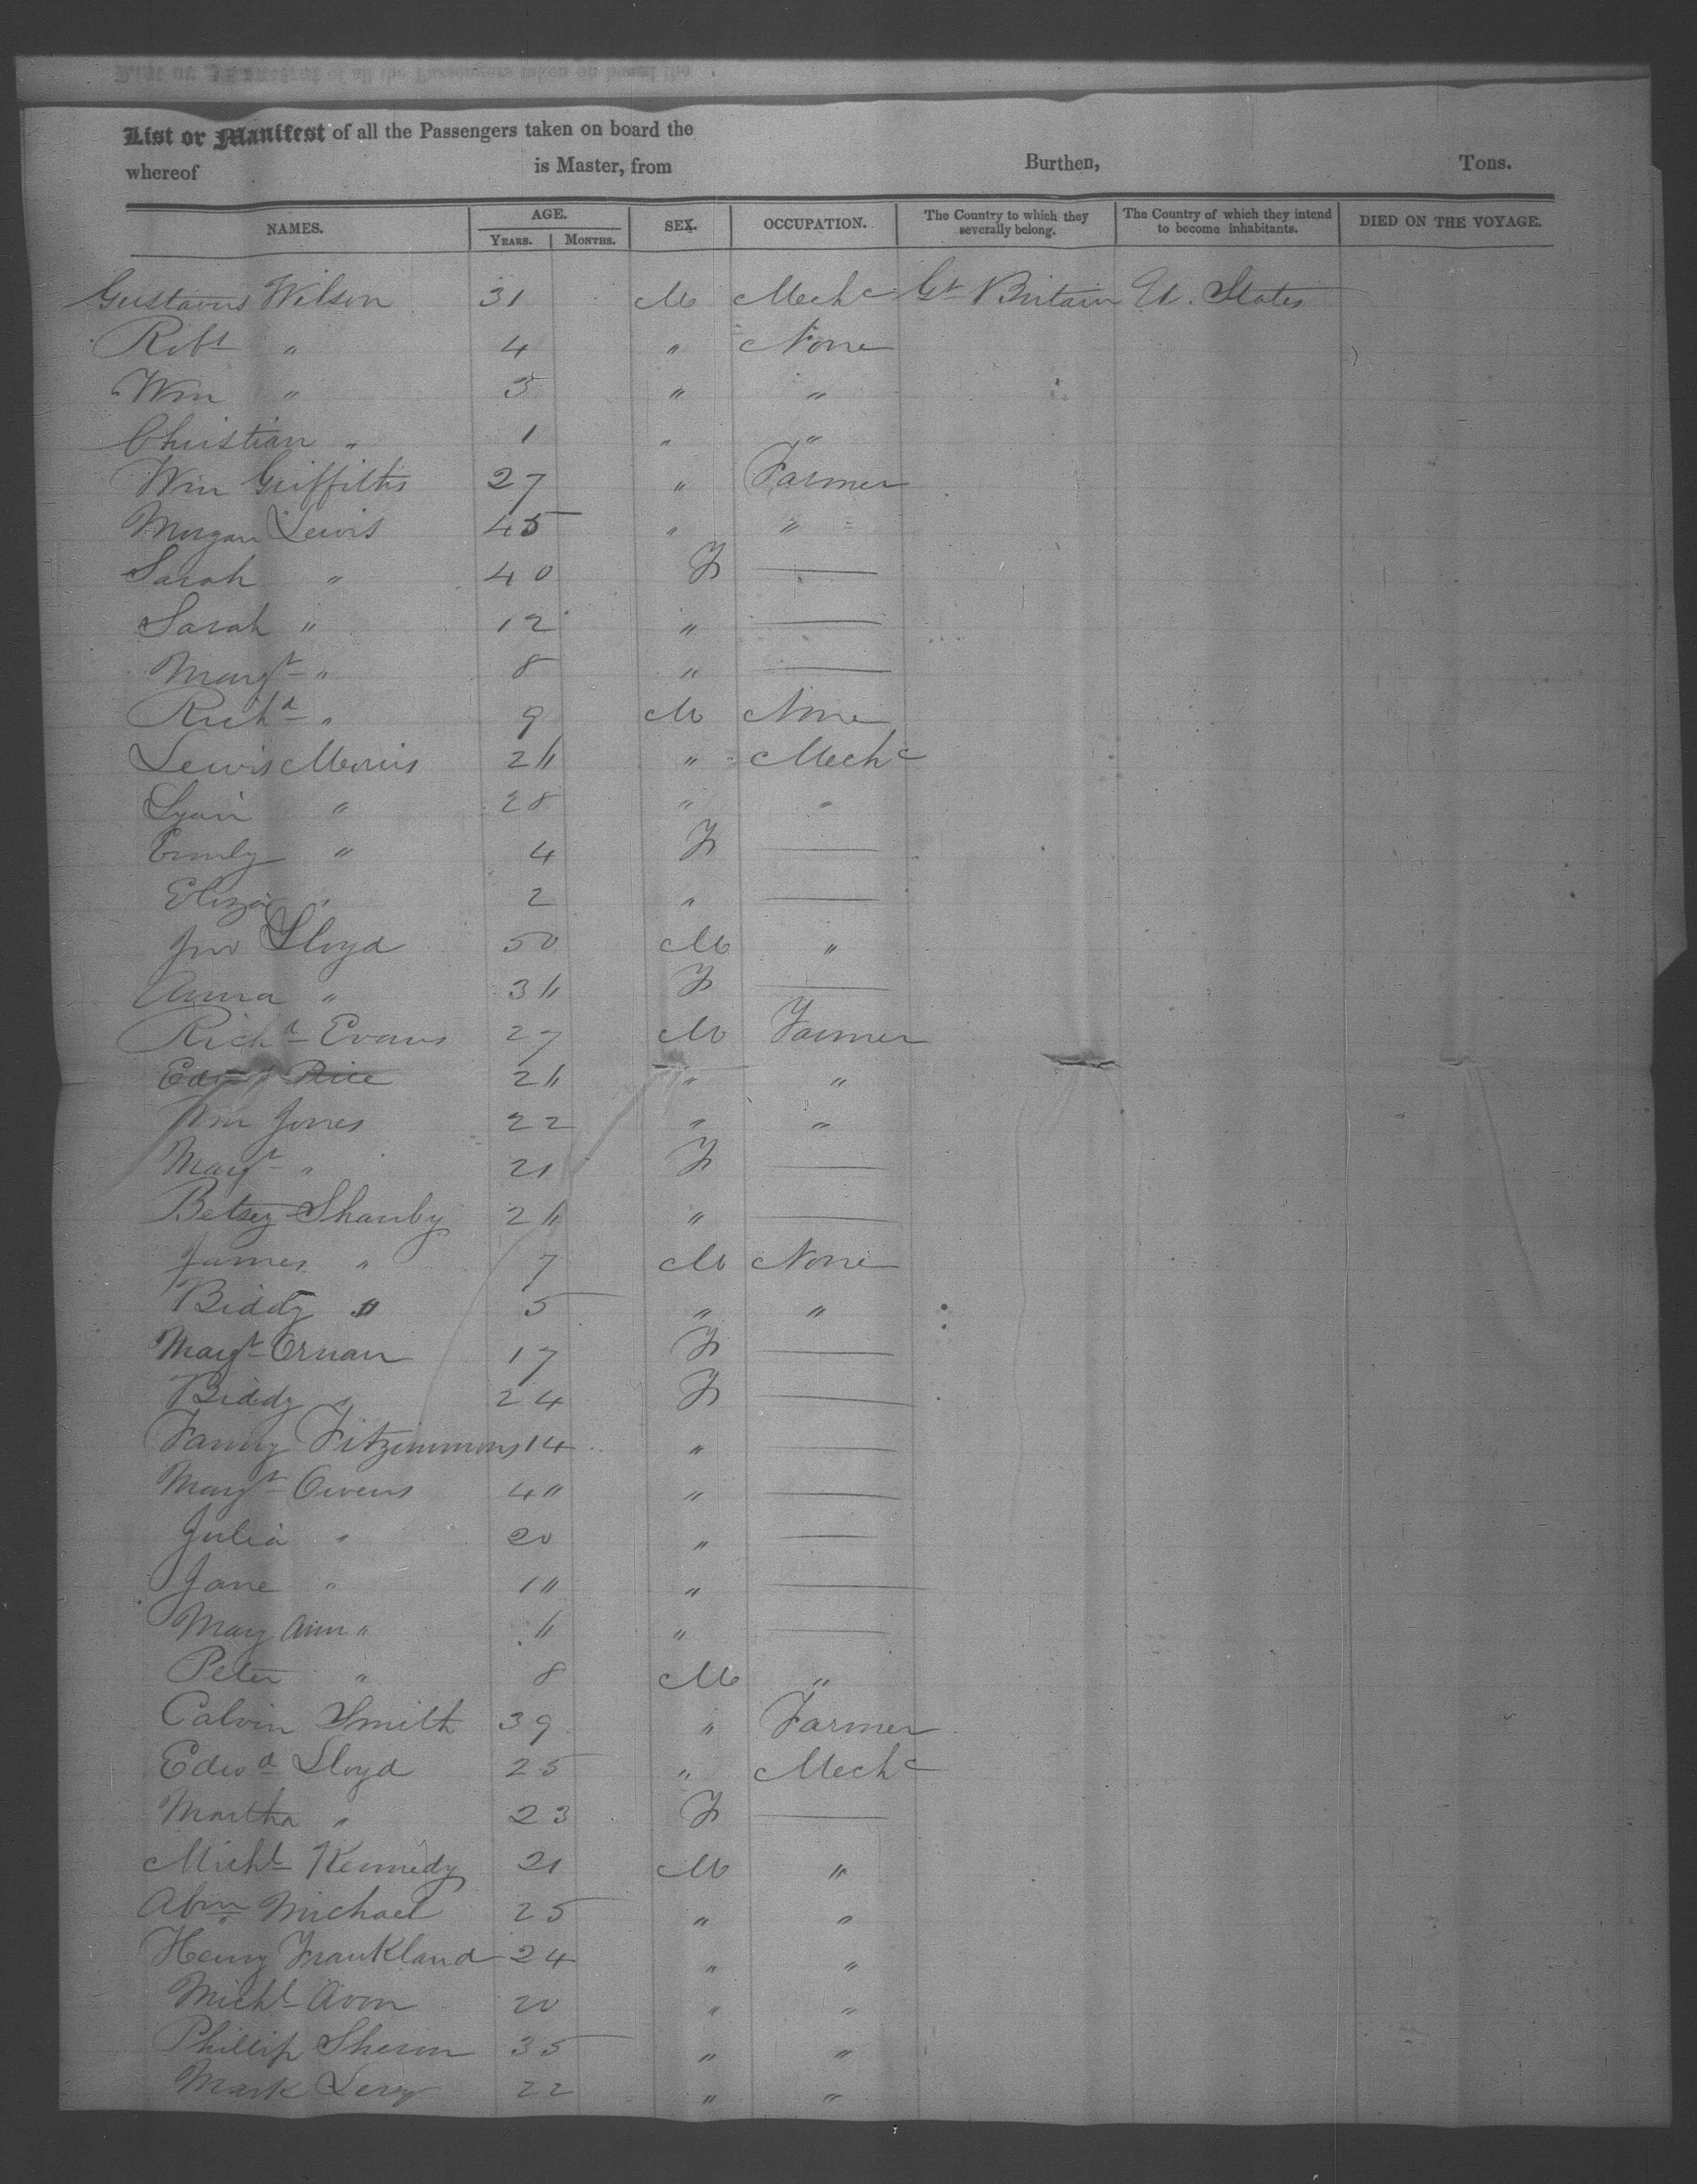 List or Manifest of all the Passengers taken on board the
whereof is Master, from Burthen, Tons.
NAMES. AGE. YEARS. MONTHS. SEX. OCCUPATION. The Country to which they severally belong. The Country of which they intend to become inhabitants. DIED ON THE VOYAGE.
Gustavus Wilson 31 M Mechc Gt Britain U. States
Robt " 4 " None
Wm " 3 " "
Christian " 1 " "
Wm Griffiths 27 " Farmer
Morgan Lewis 45 " "
Sarah " 40 F —
Sarah " 12 " —
Margt " 8 " —
Richd " 9 M None
Lewis Morris 26 " Mechc
" 28 " "
Emily " 4 F —
Eliza " 2 " —
Jno Lloyd 50 M "
Anna " 36 F —
Richd Evans 27 M Farmer
Price 26 " "
Wm Jones 22 " "
Margt " 21 F —
Betsey 26 " —
James " 7 M None
Biddy " 5 " "
Margt 17 F —
Biddy " 24 F —
Fanny Fitzimmons 14 " —
Margt Owens 40 " —
Julia " 20 " —
Jane " 16 " —
Mary Ann " 6 " —
Peter " 8 M "
Calvin Smith 39 " Farmer
Edwd Lloyd 25 " Mechc
Martha " 23 F —
Michl Kennedy 21 M "
Abm Michael 25 " "
Henry Frankland 24 " "
Michl 20 " "
Phillip 35 " "
Mark 22 " "